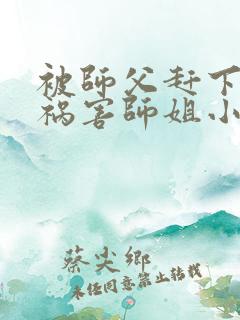 被師父赶下
祸害師姐小
蔡尖鄉
未经同意禁止转载